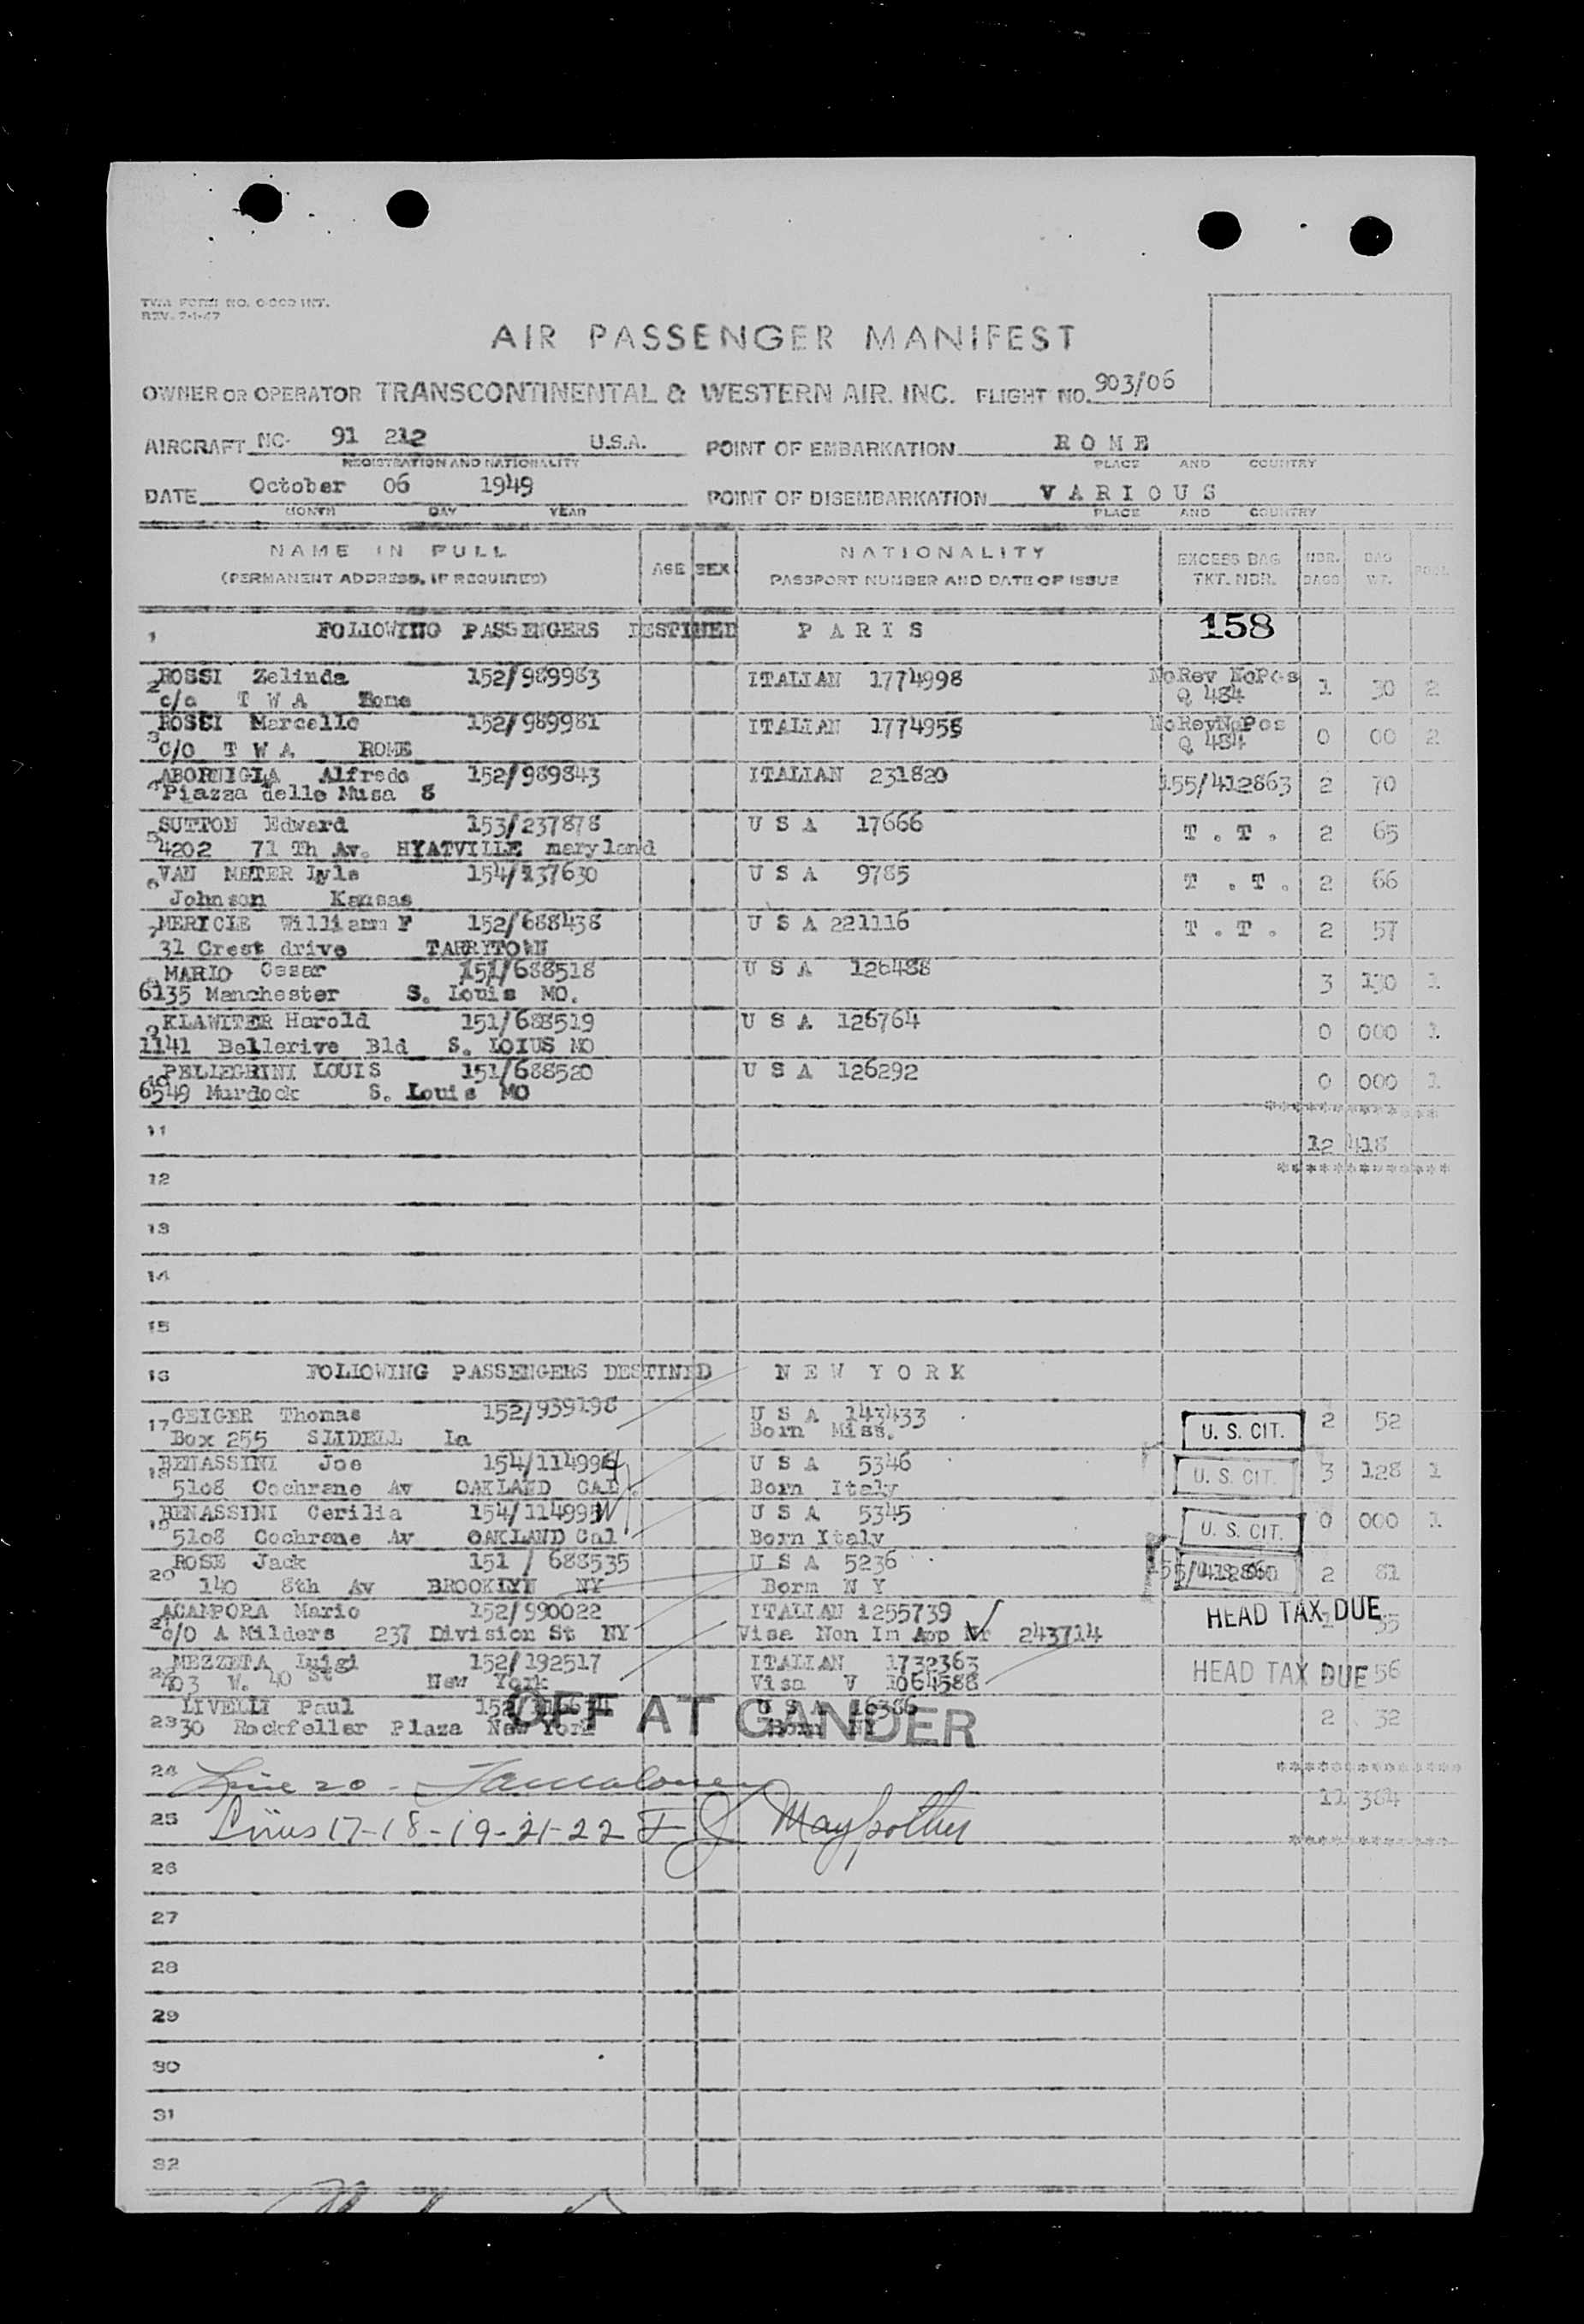 TWA FORM NO. INT.
REV. 7-1-47
AIR PASSENGER MANIFEST
OWNER OR OPERATOR TRANSCONTINENTAL & WESTERN AIR. INC. FLIGHT NO. 903/06
AIRCRAFT NC- 91 212 U.S.A. POINT OF EMBARKATION R O M E
REGISTRATION AND NATIONALITY PLACE AND COUNTRY
DATE October 06 1949 POINT OF DISEMBARKATION V A R I O U S
MONTH DAY YEAR PLACE AND COUNTRY
NAME IN FULL AGE SEX NATIONALITY EXCESS BAG NBR. BAG POOL
(PERMANENT ADDRESS, IF REQUIRED) PASSPORT NUMBER AND DATE OF ISSUE TKT. NBR. BAGS WT.
1 FOLLOWING PASSENGERS DESTINED P A R I S 158
2 ROSSI Zelinda 152/989983 ITALIAN 1774998 NoRev NoPos 1 30 2
c/o T W A Rome Q 484
3 ROSSI Marcello 152/989981 ITALIAN NoRevNoPos 0 00 2
C/O T W A ROME Q 484
4 ABORNIGLA Alfredo 152/989843 ITALIAN 231820 155/412863 2 70
Piazza delle Musa 8
5 SUTTON Edward 153/237878 U S A 17666 T . T . 2 65
4202 71 Th Av. HYATVILLE maryland
6 VAN METER Lyle 154/137630 U S A 9785 T . T . 2 66
Johnson Kansas
7 MERICLE Williamm F 152/688438 U S A 221116 T . T . 2 57
31 Crest drive TARRYTOWN
8 MARIO Cesar 151/688518 U S A 126488 3 130 1
6135 Manchester S. Louis MO.
9 KLAWITER Harold 151/688519 U S A 126764 0 000 1
1141 Bellerive Bld S. LOIUS MO
10 PELLEGRINI LOUIS 151/688520 U S A 126292 0 000 1
6549 Murdock S. Louis MO
*************
11 12 418
*************
12
13
14
15
16 FOLLOWING PASSENGERS DESTINED N E W Y O R K
17 GEIGER Thomas 152/939198 U S A 143433 U. S. CIT. 2 52
Box 255 SLIDELL La Born Miss.
18 BENASSINI Joe 154/114994 U S A 5346 U. S. CIT. 3 128 1
5108 Cochrane Av OAKLAND CAL. Born Italy
19 BENASSINI Cerilia 154/114995 U S A 5345 U. S. CIT. 0 000 1
5108 Cochrane Av OAKLAND Cal Born Italy
20 ROSE Jack 151 / 688535 U S A 5236 2 81
140 8th Av BROOKLYN NY Born N Y
21 ACAMPORA Mario 152/990022 ITALIAN 1255739 HEAD TAX DUE 35
c/o A Milders 237 Division St NY Visa Non Im App Nr 243714
22 MEZZETA Luigi 152/192517 ITALIAN 1732363 HEAD TAX DUE 56
403 W. 40 St New York Visa V 1064588
23 LIVELLI Paul U S A 16386 2 32
30 Rockfeller Plaza New York Born NY
OFF AT GANDER
24 Line 20 -
*************
11 384
25 Lines 17-18-19-21-22 F J Maypother
*************
26
27
28
29
30
31
32